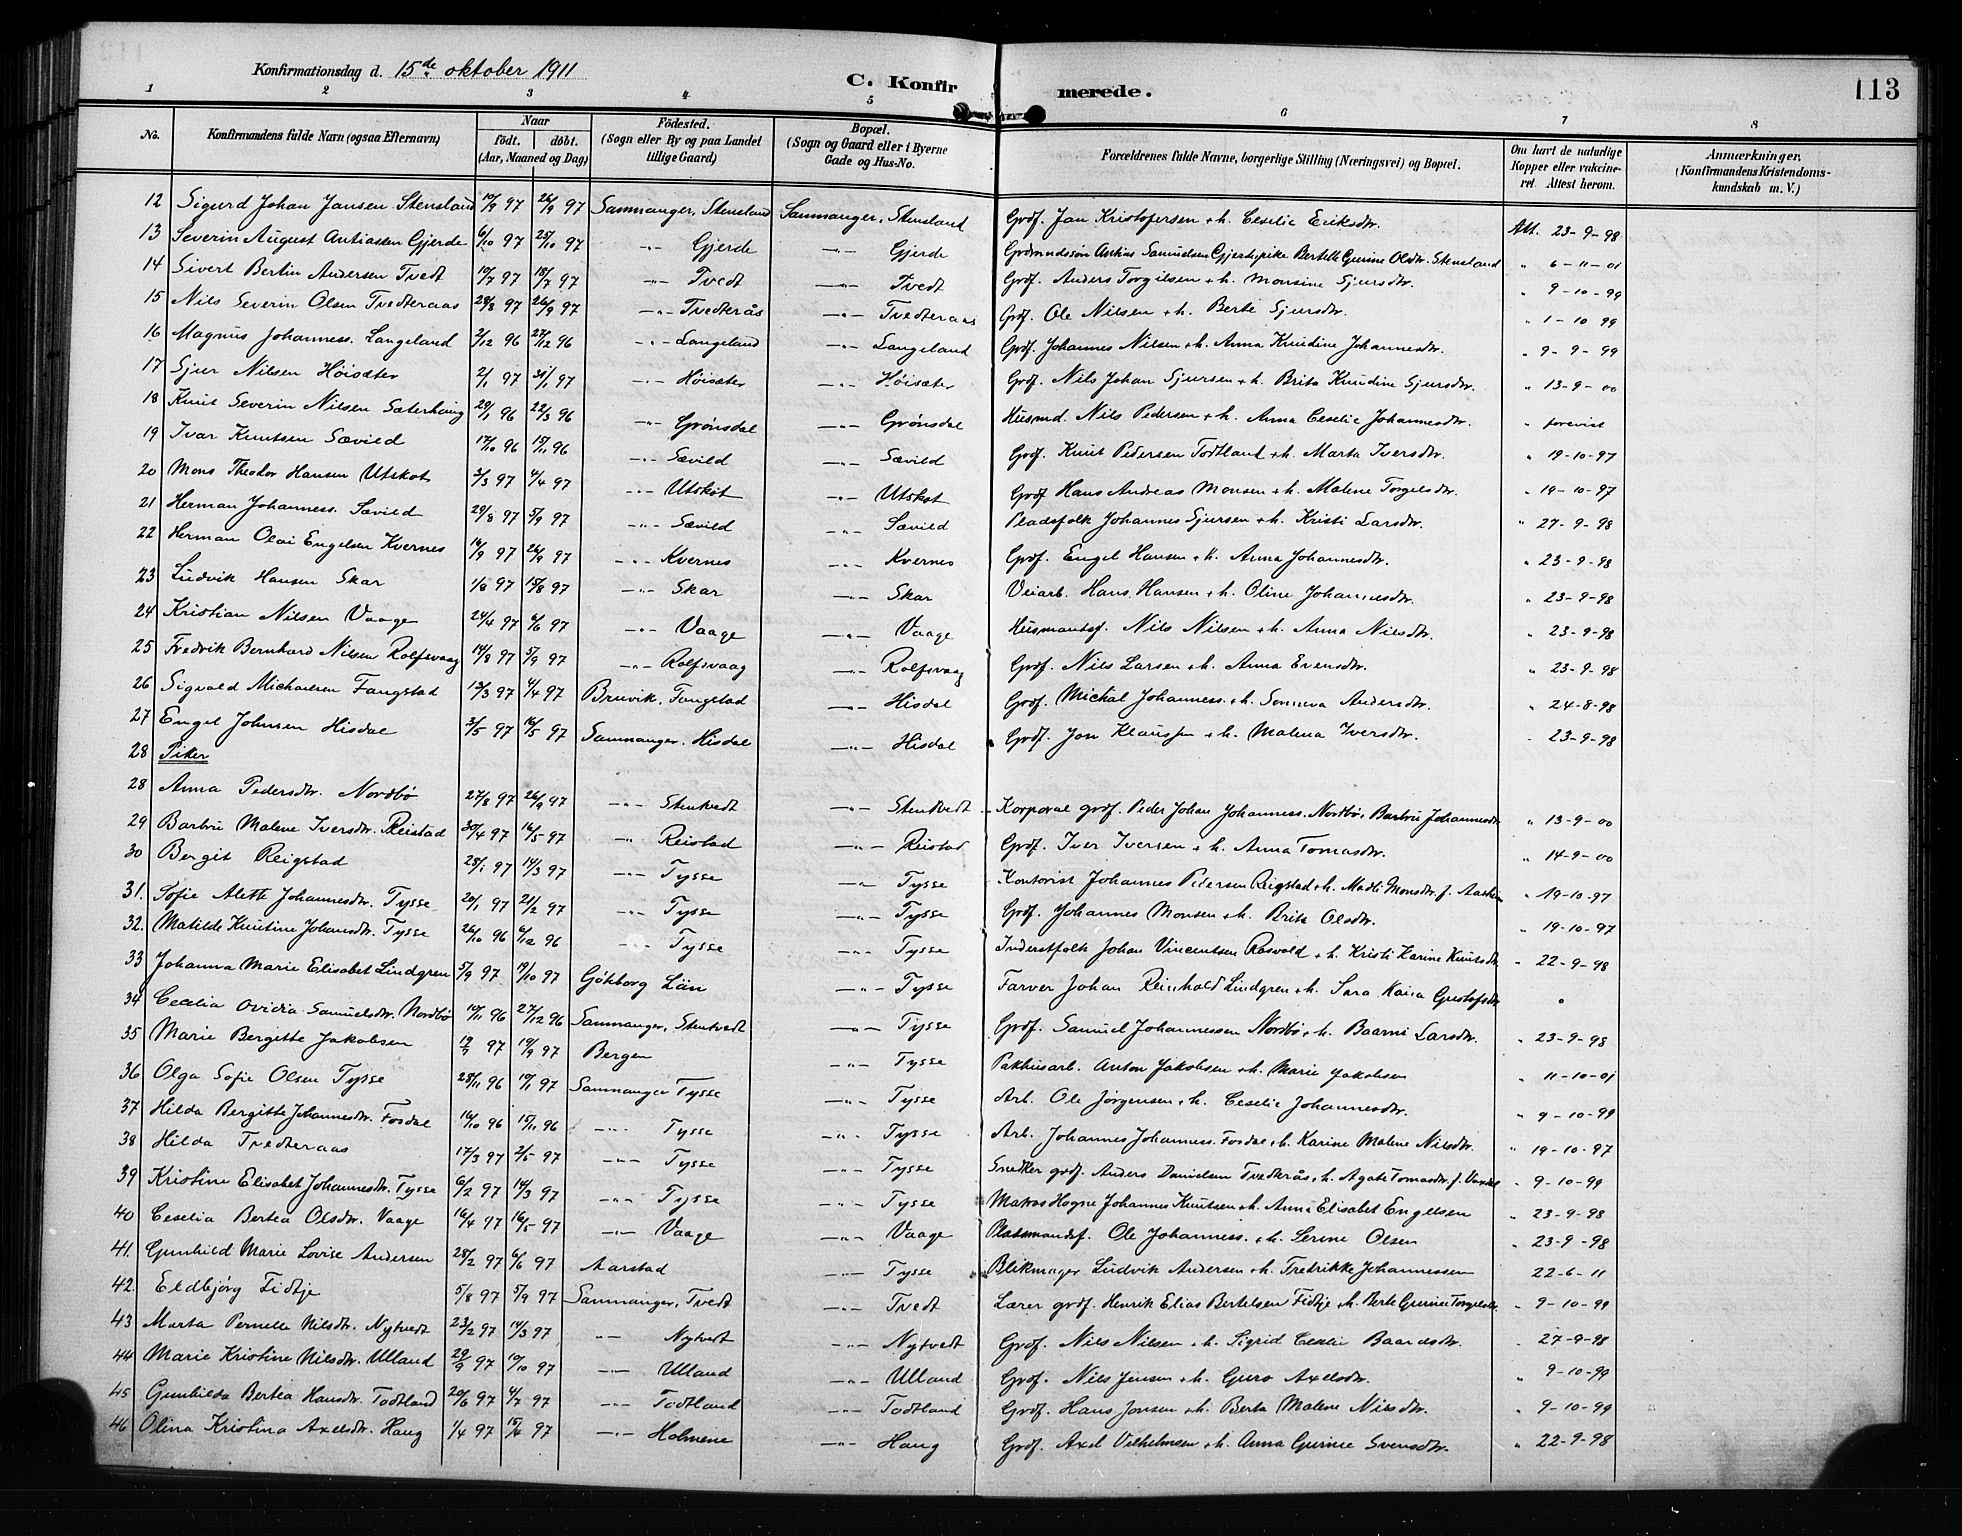 Konfirmationsdag d. 15de oktober 1911 C. Konfirmerede. 113
1 2 3 4 5 6 7 8
No. Konfirmandens fulde Navn (ogsaa Efternavn) Naar født. døbt. (Aar, Maaned og Dag) Fødested. (Sogn eller By og paa Landet tillige Gaard) Bopæl. (Sogn og Gaard eller i Byerne Gade og Hus-No. Forældrenes fulde Navne, borgerlige Stilling (Næringsvei) og Bopæl. Om havt de naturlige Kopper eller vakcineret. Attest herom. Anmærkninger. (Konfirmandens Kristendomskundskab m. V.)
12 Sigurd Johan Jansen Stensland 10/9 97 26/9 97 Samnanger, Stensland Samnanger, Stensland Grdf. Jan Kristofersen + h. Ceselie Eriksdtr. Att. 23-9-98
13 Severin August Antiassen Gjerde 6/10 97 25/10 97 -"- Gjerde -"- Gjerde Grdmandssøn Antius Samuelsen Gjerde, pike Bertille Gurine Olsdtr. Stensland " 6-11-01
14 Sivert Bertin Andersen Tvedt 10/7 97 18/7 97 -"- Tvedt -"- Tvedt Grdf. Anders Torgilsen + h. Monsine Sjursdtr. " 9-10-99
15 Nils Severin Olsen Tvedteraas 28/8 97 26/9 97 -"- Tvedterås -"- Tvedteraas Grdf. Ole Nilsen + h. Berte Sjursdtr. " 1-10 99
16 Magnus Johanness. Langeland 2/12 96 27/12 96 -"- Langeland -"- Langeland Grdf. Johannes Nilsen + h. Anna Knudine Johannesdtr. " 9-9-99
17 Sjur Nilsen Høisæter 2/1 97 31/1 97 -"- Høisæter -"- Høisæter Grdf. Nils Johan Sjursen + h. Brita Knudine Sjursdtr. " 13-9-00
18 Knut Severin Nilsen Sæterhaug 29/1 96 22/3 96 -"- Grønsdal -"- Grønsdal Husmd. Nils Pedersen + h. Anna Ceselie Johannesdtr. " forevist
19 Ivar Knutsen Sævild 17/10 96 15/11 96 -"- Sævild -"- Sævild Grdf. Knut Pedersen Todtland + h. Marta Iversdtr. " 19-10-97
20 Mons Theodor Hansen Utskot 3/3 97 4/4 97 -"- Utskot -"- Utskot Grdf. Hans Andreas Monsen + h. Malene Torgelsdtr. " 19-10-97
21 Herman Johanness. Sævild 29/8 97 5/9 97 -"- Sævild -"- Sævild Pladsfolk Johannes Sjursen + h. Kristi Larsdtr. " 27-9-98
22 Herman Olai Engelsen Kvernes 16/9 97 26/9 97 -"- Kvernes -"- Kvernes Grdf. Engel Hansen + h. Anna Johannesdtr. " 23-9-98
23 Ludvik Hansen Skar 1/8 97 15/8 97 -"- Skar -"- Skar Veiarb. Hans Hansen + h. Oline Johannesdtr. " 23-9-98
24 Kristian Nilsen Vaage 24/4 97 6/6 97 -"- Vaage -"- Vaage Husmantsf. Nils Nilsen + h. Anna Nilsdtr. " 23-9-98
25 Fredrik Bernhard Nilsen Rolfsvaag 14/8 97 5/9 97 -"- Rolfsvaag -"- Rolfsvaag Grdf. Nils Larsen + h. Anna Evensdtr. " 23-9-98
26 Sigvald Michaelsen Fangstad 13/3 97 4/4 97 Bruvik, Fangstad -"- Hisdal Grdf. Michal Johanness. + h. Sonneva Andersdtr. " 24-8-98
27 Engel Johnsen Hisdal 3/5 97 16/5 97 Samnanger. Hisdal -"- Hisdal Grdf. Jon Klaussen + h. Malena Iversdtr. " 23-9-98
28 Piker
28 Anna Pedersdtr. Nordbø 27/8 97 26/9 97 -"- Stenkvedt -"- Stenkvedt Korporal grdf. Peder Johan Johanness. Nordbø, Barbru Johannesdtr " 13-9-00
29 Barbru Malene Iversdtr. Reistad 30/4 97 16/5 97 -"- Reistad -"- Reistad Grdf. Iver Iversen + h. Anna Tomasdtr. " 14-9-00
30 Bergit Reigstad 28/1 97 14/3 97 -"- Tysse -"- Tysse Kontorist Johannes Pedersen Reigstad + h. Madli Monsdtr. f. " 19-10-97
31. Sofie Alette Johannesdtr. Tysse 20/1 97 21/2 97 -"- Tysse -"- Tysse Grdf. Johannes Monsen + h. Brita Olsdtr. " 19-10-97
32. Matilde Knutine Johansdtr. Tysse 26/10 96 6/12 96 -"- Tysse -"- Tysse Inderstfolk Johan Vincentsen Røsvold + h. Kristi Karine Knutsdtr " 22-9-98
33 Johanna Marie Elisabet Lindgren 5/9 97 19/10 97 Göteborg Län -"- Tysse Farver Johan Reinhold Lindgren + h. Sara Kaisa Gustafsdtr "
34 Cecelia Ovidia Samuelsdtr. Nordbø 10/11 96 27/12 96 Samnanger, Stenkvedt -"- Tysse Grdf. Samuel Johannessen Nordbø + h. Baarni Larsdtr. " 23-9-98
35 Marie Bergitte Jakobsen 19/7 97 19/9 97 Bergen -"- Tysse Pakhusarb. Anton Jakobsen + h. Marie Jakobsen " 11-10-01
36 Olga Sofie Olsen Tysse 28/11 96 10/1 97 Samnanger Tysse -"- Tysse Arb. Ole Jørgensen + h. Ceselie Johannesdtr. " 9-10-99
37 Hilda Bergitte Johannesdtr. Fosdal 16/10 96 15/11 96 -"- Tysse -"- Tysse Arb. Johannes Johanness. Fosdal + h. Karine Malene Nilsdtr. " 19-10-97
38 Hilda Tvedteraas 17/3 97 2/5 97 -"- Tysse -"- Tysse Snedker grdf. Anders Danielsen Tvedterås + h. Agate Tomasdtr. f. " 9-10-99
39 Kristine Elisabet Johannesdtr. Tysse 6/2 97 14/3 97 -"- Tysse -"- Tysse Matros Hogne Johannes Knutsen + h. Anna Elisabet Engelsen " 23-9-98
40 Ceselia Bertea Olsdtr. Vaage 16/4 97 16/5 97 -"- Vaage -"- Vaage Pladsmandsf. Ole Johanness. + h. Serine Olsen " 23-9-98
41. Gunhild Marie Lovise Andersen 28/2 97 6/6 97 Aarstad -"- Tysse Blikmager Ludvik Andersen + h. Fredrikke Johannessen " 22-6-11
42. Eldbjørg Fidtje 5/8 97 5/9 97 Samnanger, Tvedt -"- Tvedt Lærer grdf. Henrik Elias Bertelsen Fidtje + h. Berte Gurine Torgelsdtr " 9-10-99
43 Marta Pernelle Nilsdtr. Nytvedt 23/2 97 14/3 97 -"- Nytvedt -"- Nytvedt Grdf. Nils Nilsen + h. Sigrid Ceselie Baardsdtr. " 27-9-98
44 Marie Kristine Nilsdtr. Ulland 29/9 97 10/10 97 -"- Ulland -"- Ulland Grdf. Nils Jensen + h. Guro Axelsdtr. " 9-10-99
45 Gunhilda Bertea Hansdtr. Todtland 20/6 97 4/7 97 -"- Todtland -"- Todtland Grdf. Hans Jonsen + h. Berta Malene Nilsdtr. " 9-10-99
46 Olina Kristina Axelsdtr. Haug 1/4 97 15/4 97 -"- Holmene -"- Haug Grdf. Axel Vilhelmsen + h. Anna Gurine Svensdtr. " 22-9-98